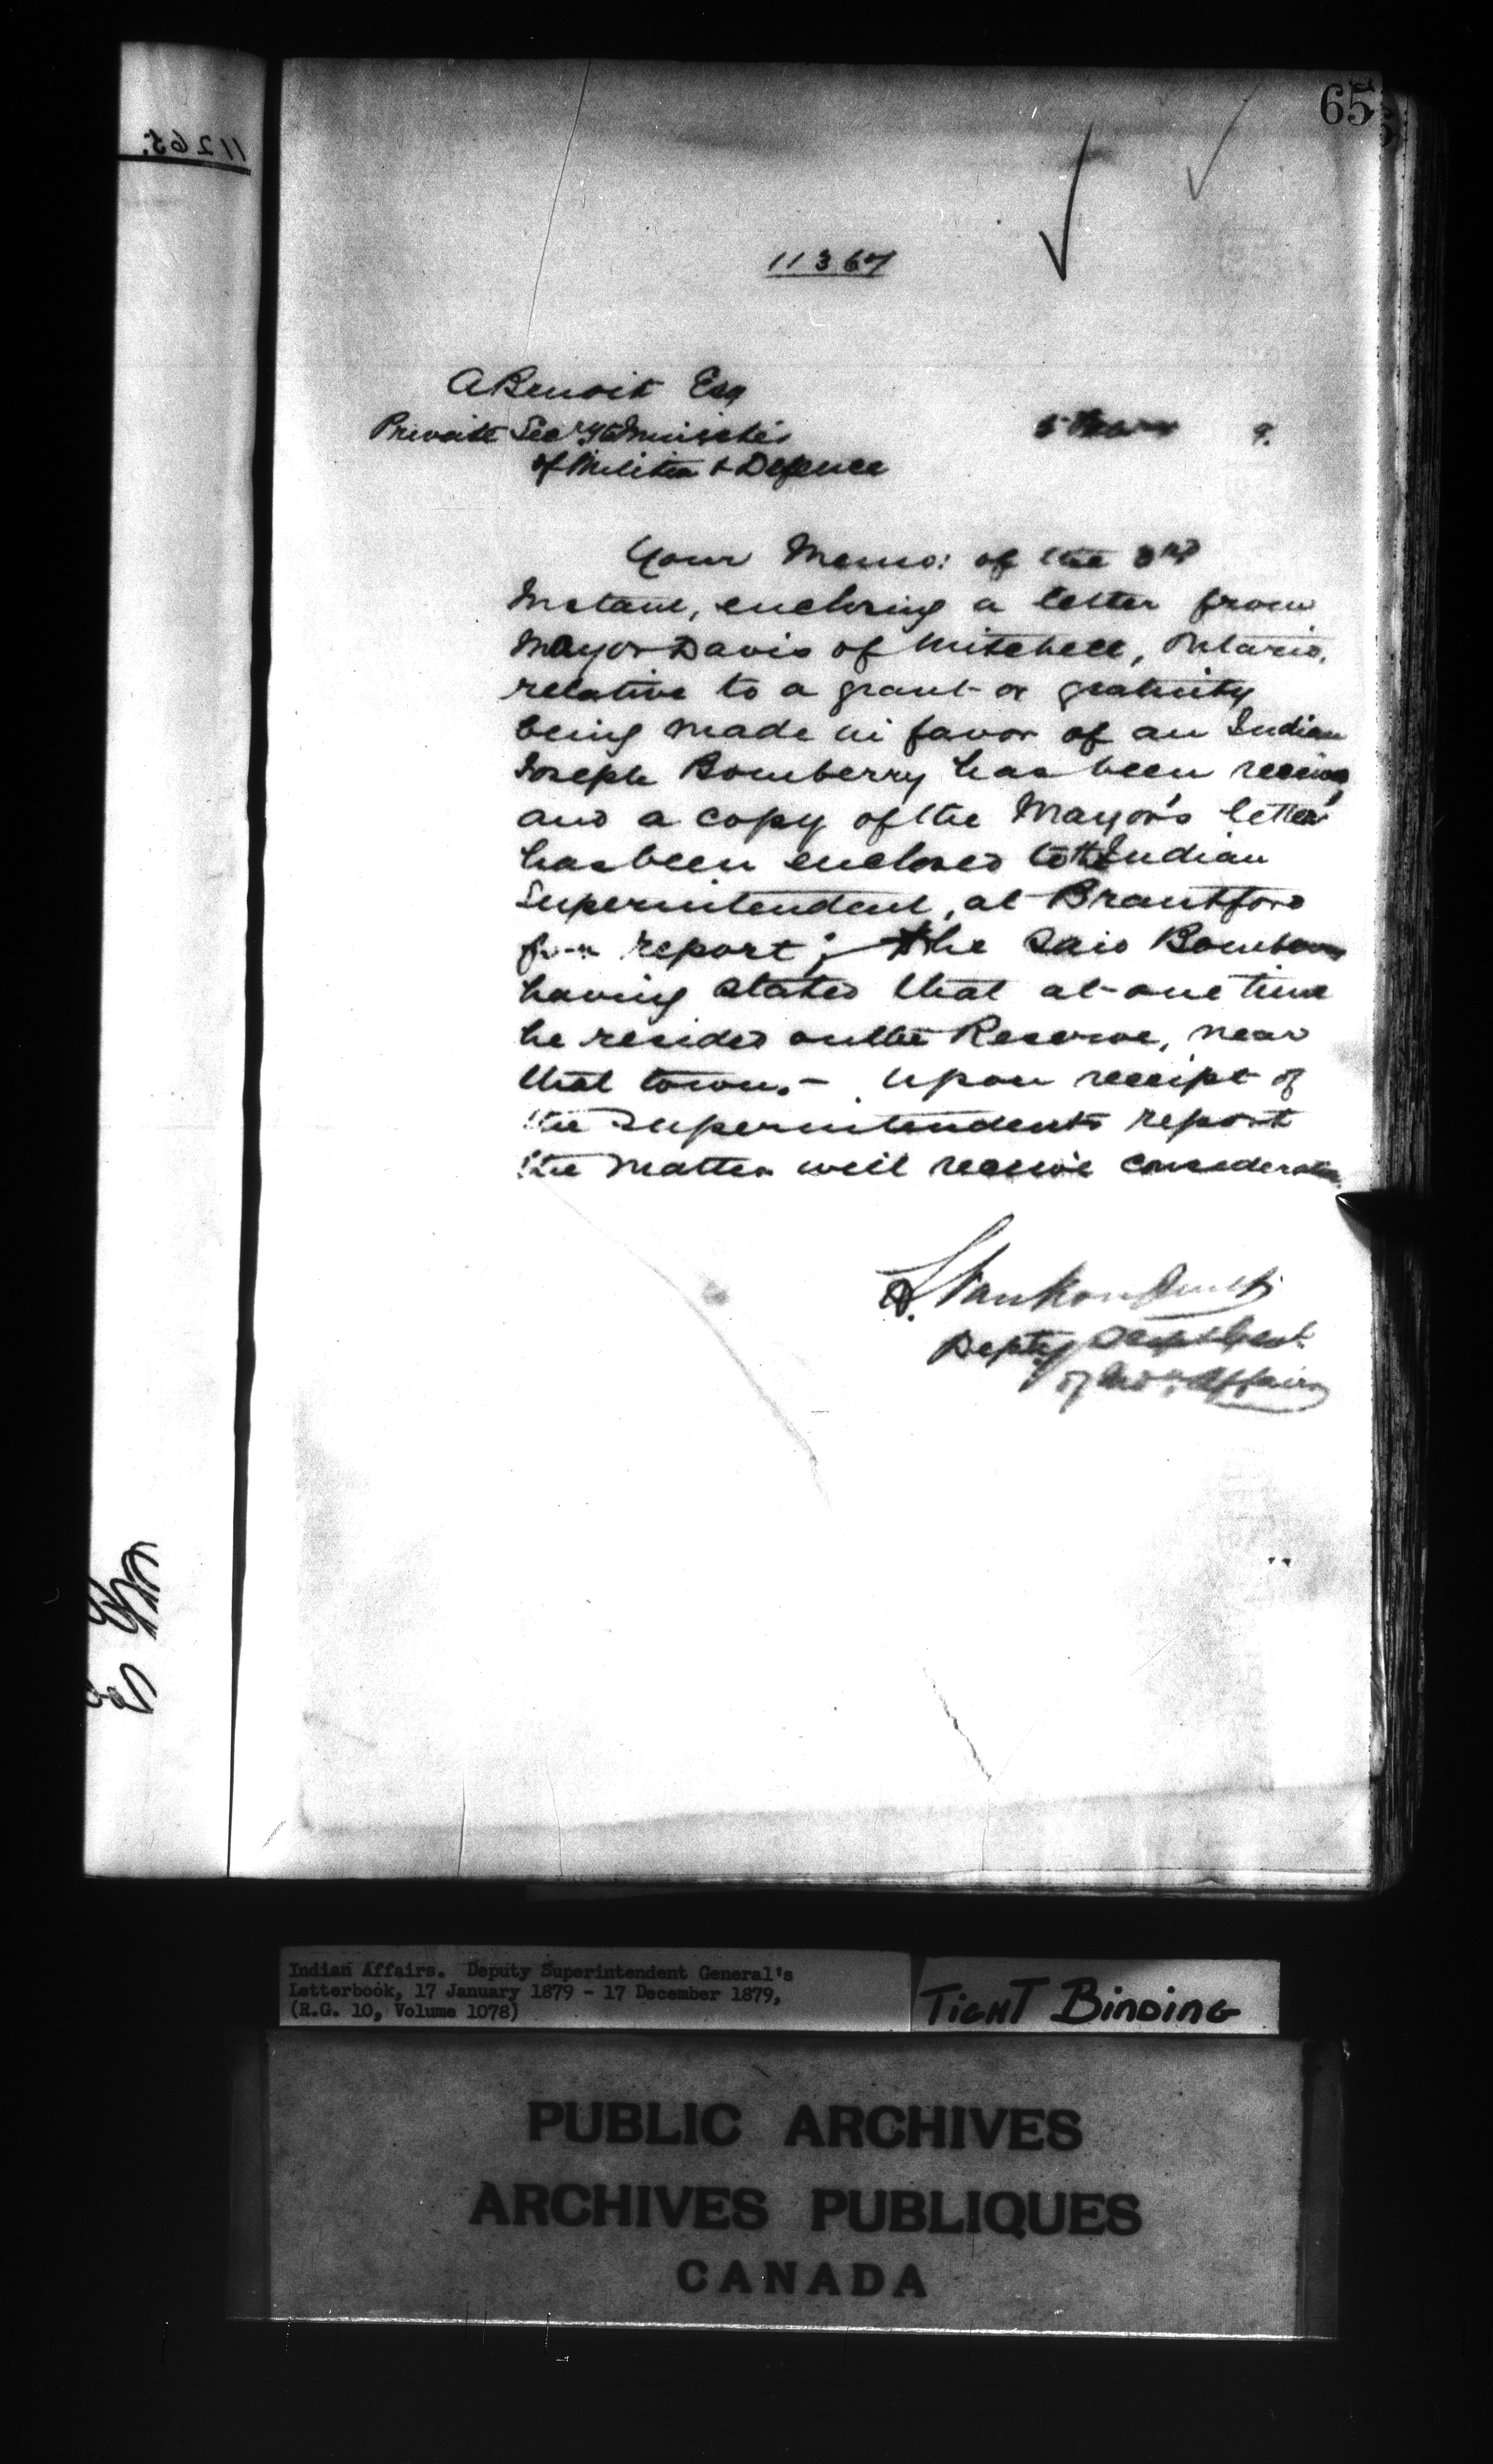 65
11265.
11367
A Benoit Esq
Private Secry to Minister
of Militia & Defence
9.
Your Memo: of the 3rd
Instant, enclosing a letter from
Mayor Davis of Mitchell, Ontario,
relative to a grant or gratuity
being made in favor of an Indian
Joseph Bomberry has been received,
and a copy of the Mayor's letter
has been enclosed to the Indian
Superintendent, at Brantford
for a report; the said Bomberry
having stated that at one time
he resided on the Reserve, near
that town. - Upon receipt of
the Superintendents report
the matter will receive consideration.
L Vankoughnet
Depty Supt Genl.
of Indn Affairs
Indian Affairs. Deputy Superintendent General's
Letterbook, 17 January 1879 - 17 December 1879,
(R.G. 10, Volume 1078)
TIGHT BINDING
PUBLIC ARCHIVES
ARCHIVES PUBLIQUES
CANADA